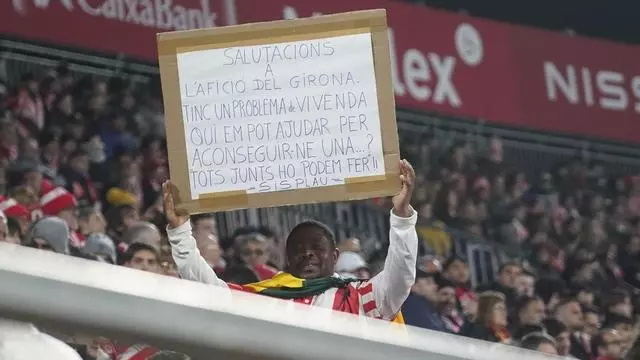 CaixaBank
NISS
SALUTACIONS
A
L'AFICIO DEL GIRONA.
TINC UN PROBLEMA de VIVENDA
QUI EM POT AJUDAR PER
ACONSEGUIR-NE UNA...?
TOTS JUNTS HO PODEM FER!!
-SISPLAU-